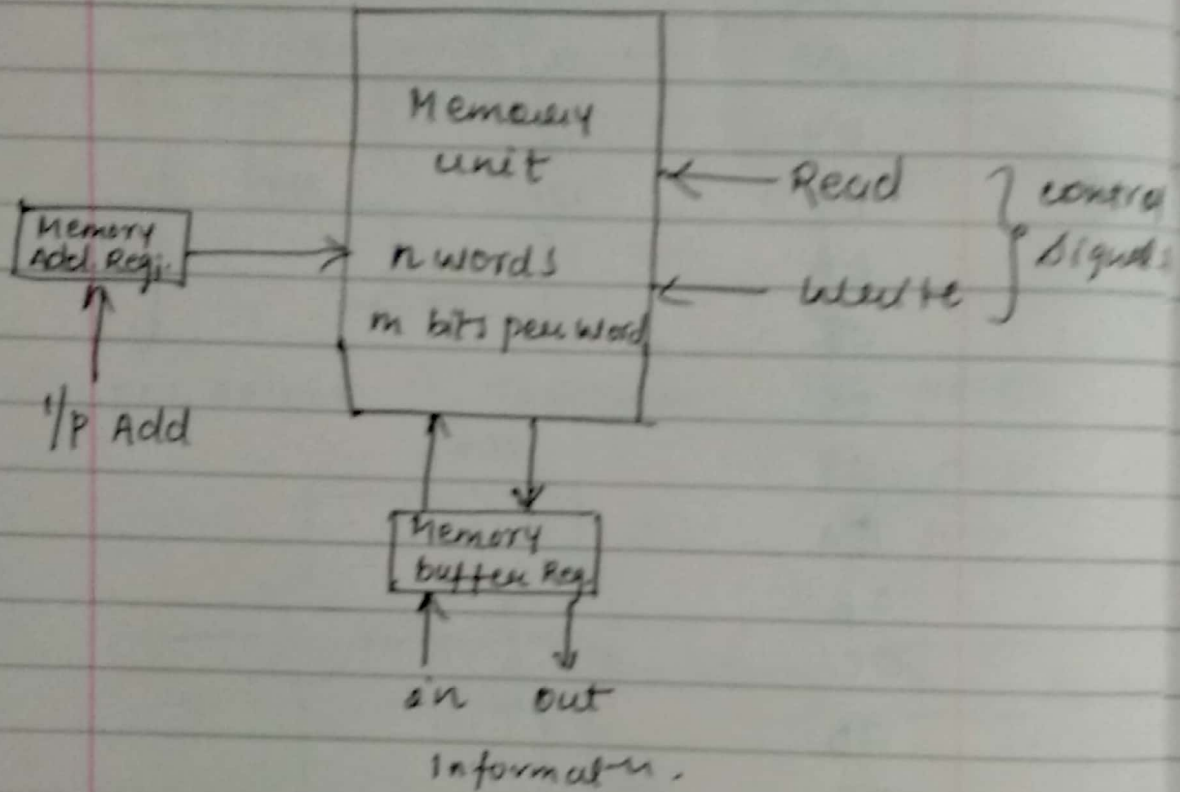 Memory
unit
n words
m bits per word
Memory
Add. Regi.
I/P Add
Read
Write
control
signals
Memory
buffer Reg.
in out
Informatn.